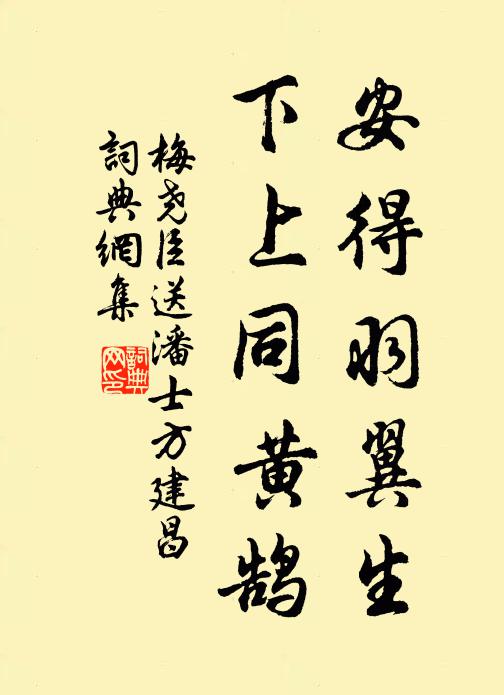 安得羽翼生
下上同黄鹄
梅尧臣送潘士方建昌
詞典網集
詞典网印